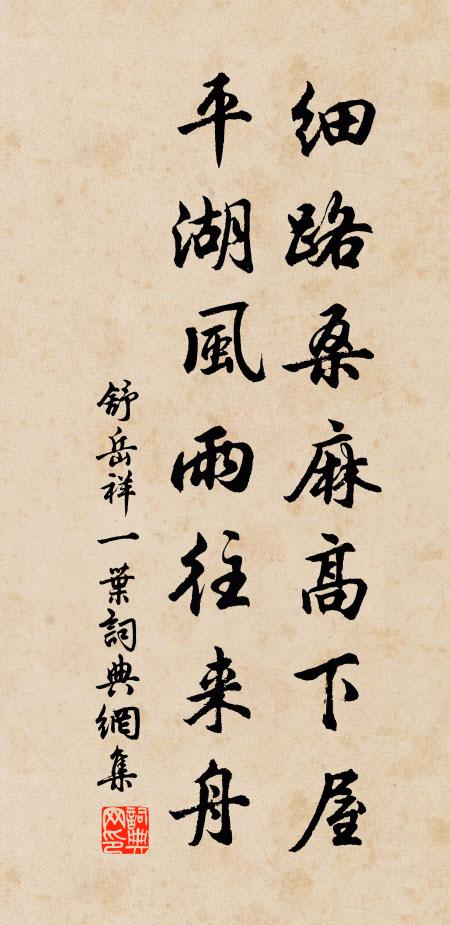 细路桑麻高下屋
平湖風雨往来舟
舒岳祥一葉詞典網集
詞典网印